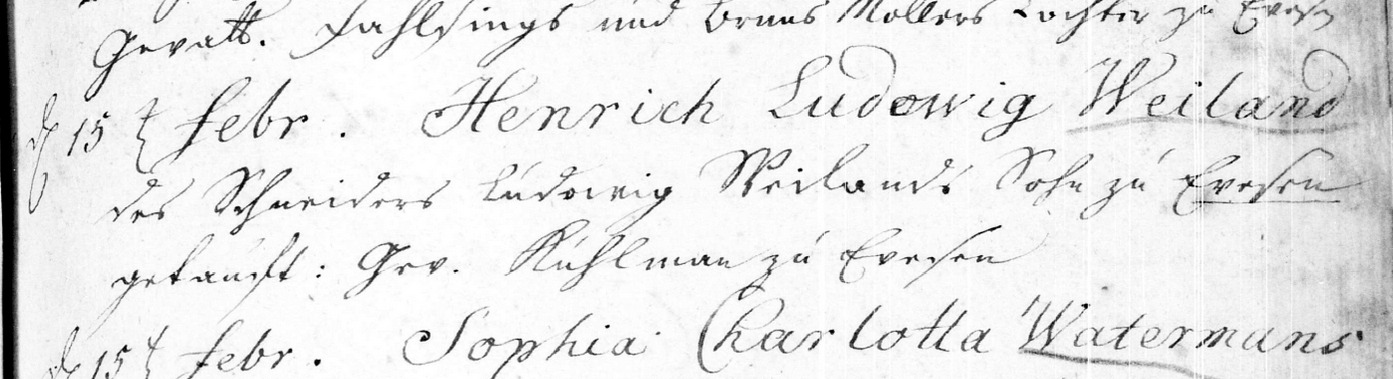 Gevatt. Fahlsings und Bruns Mollers Tochter zu Evesen
d 15 t Febr. Henrich Ludowig Weiland
des Schneiders Ludowig Weilands Sohn zu Evesen
getauft: Gev. Kuhlman zu Evesen
d 15 t Febr. Sophia Charlotta Watermans